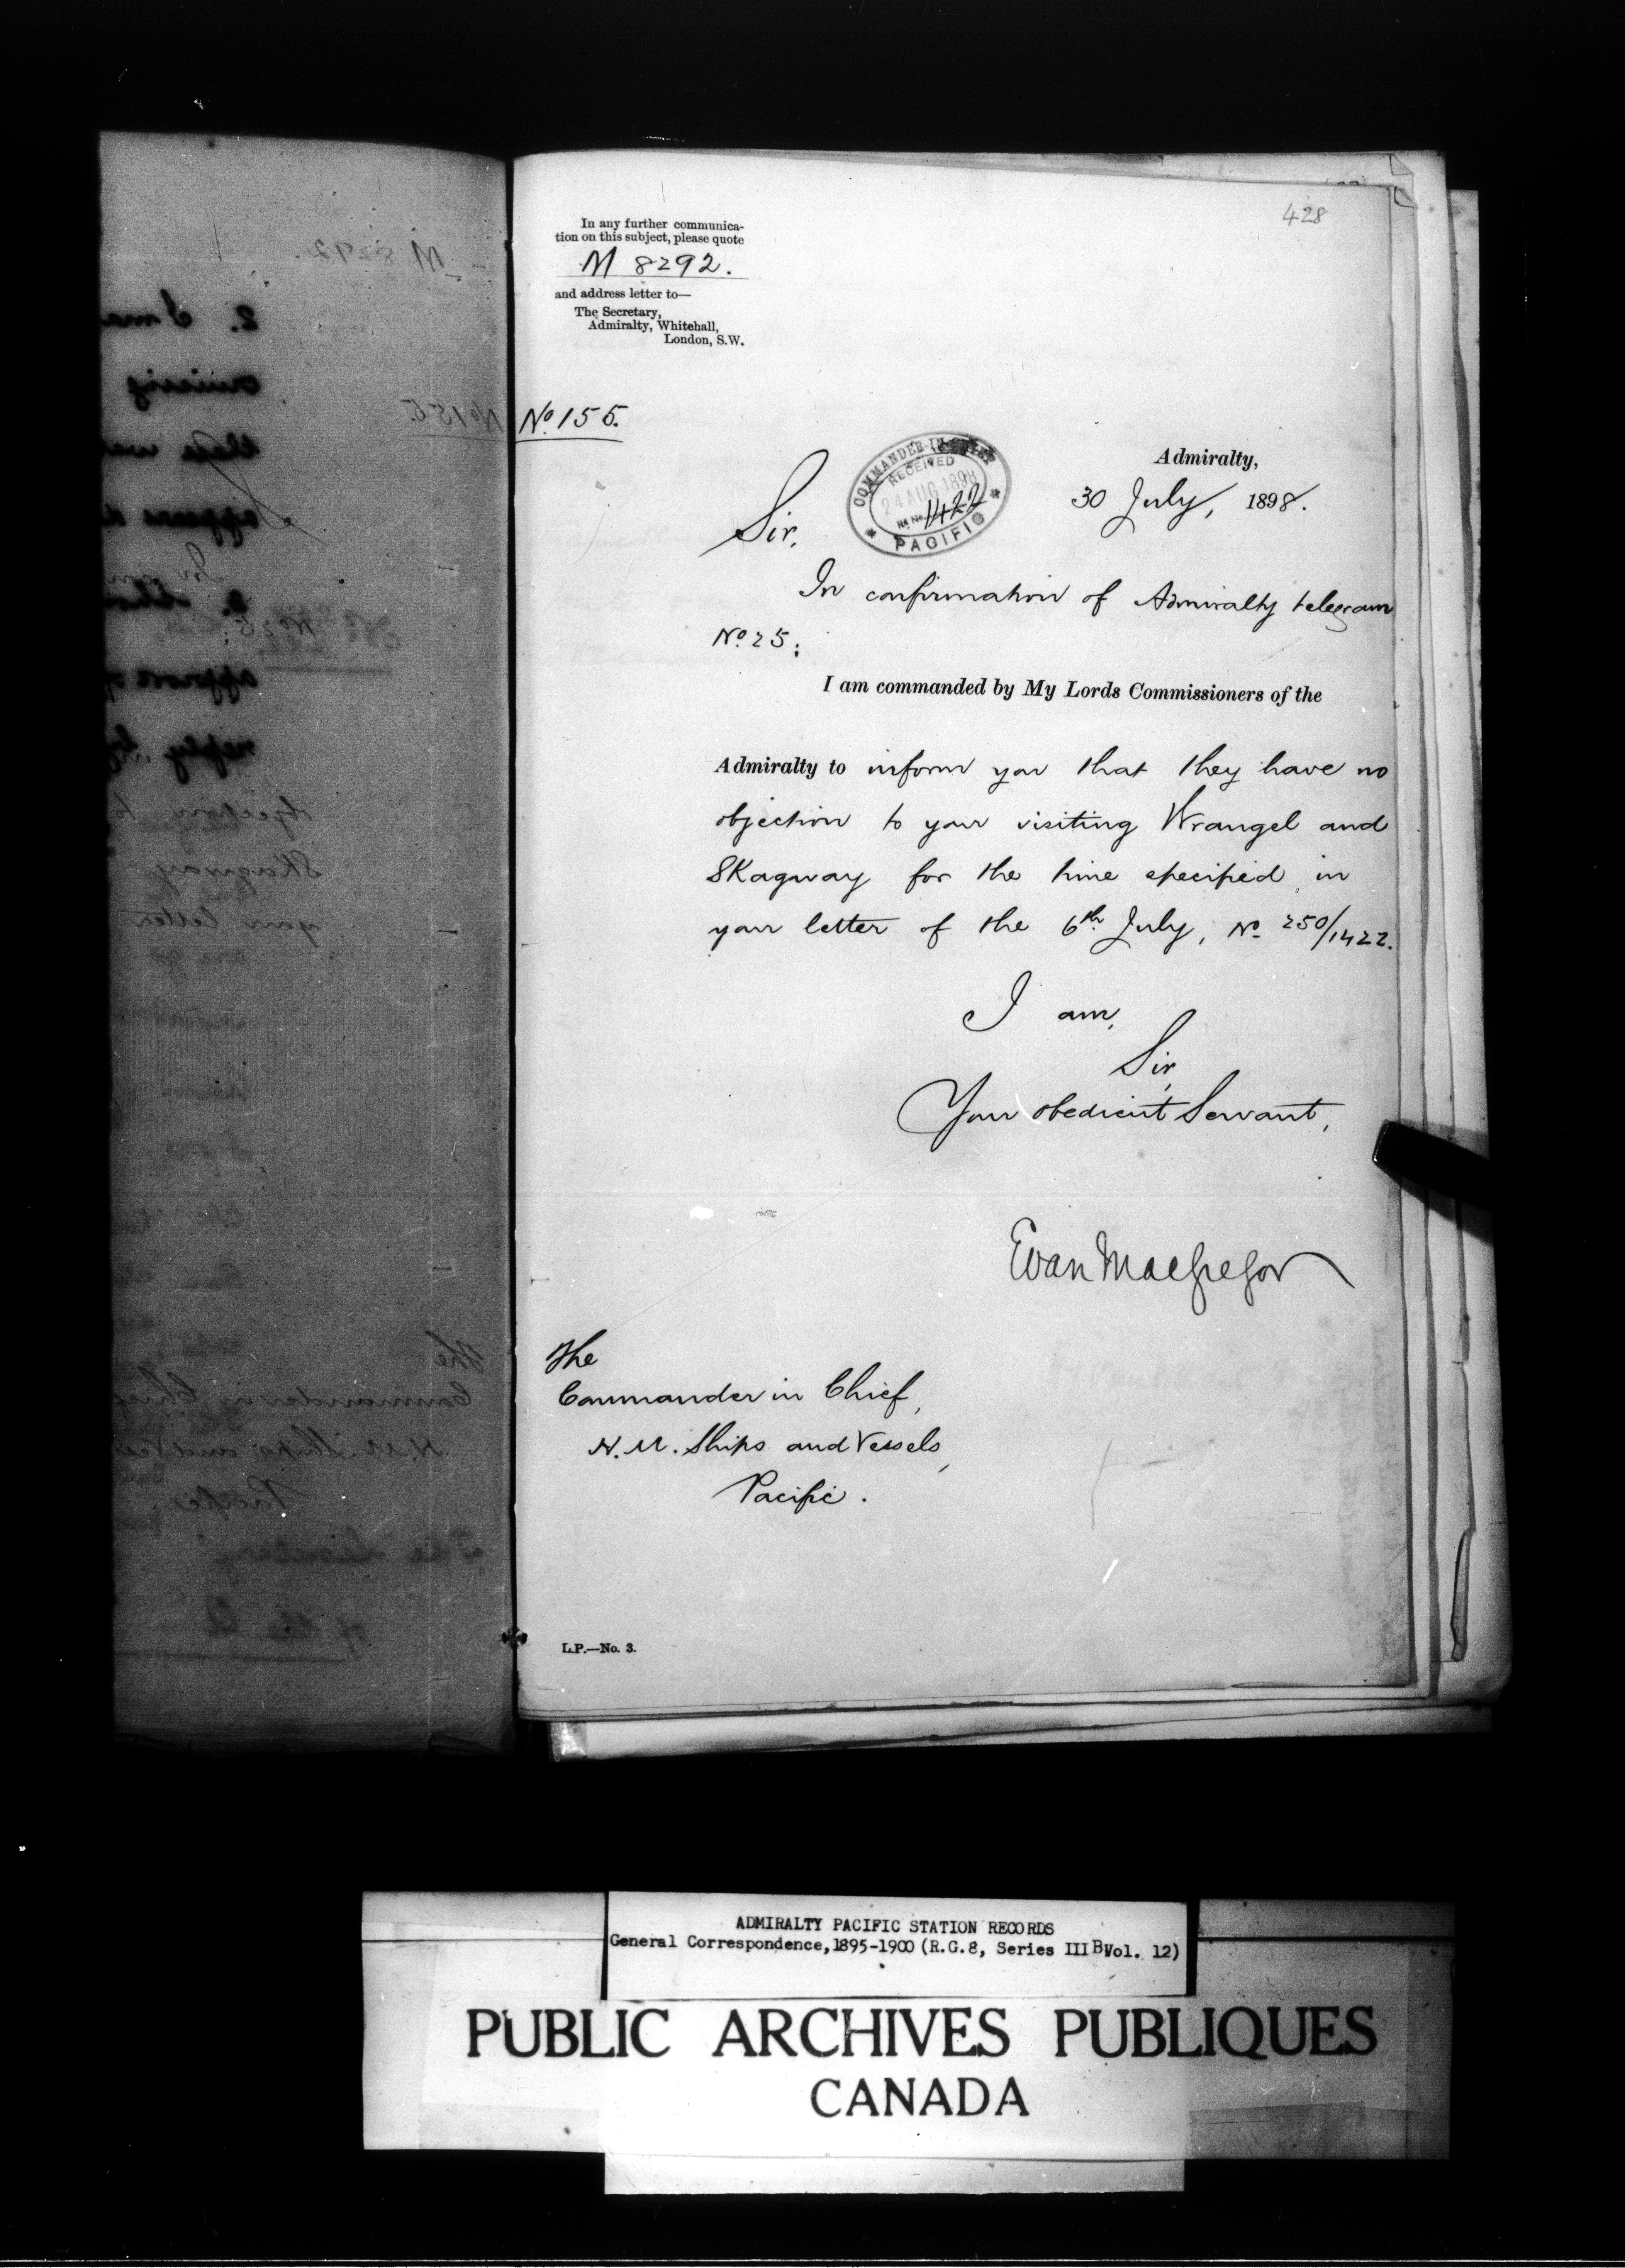 428
In any further communica-
tion on this subject, please quote
M 8292.
and address letter to—
The Secretary,
Admiralty, Whitehall,
London, S.W.
No. 155.
COMMANDER-IN-CHIEF
RECEIVED
24 AUG 1898
1422
PACIFIC
Admiralty,
30 July, 1898.
Sir,
In confirmation of Admiralty telegram
No. 25:
I am commanded by My Lords Commissioners of the
Admiralty to inform you that they have no
objection to your visiting Wrangel and
Skagway for the time specified in
your letter of the 6th July, No 250/1422.
I am,
Sir,
Your obedient Servant,
Evan MacGregor
The
Commander in Chief,
H.M. Ships and Vessels,
Pacific.
L.P.—No. 3.
ADMIRALTY PACIFIC STATION RECORDS
General Correspondence, 1895-1900 (R.G.8, Series III B, Vol. 12)
PUBLIC ARCHIVES PUBLIQUES
CANADA